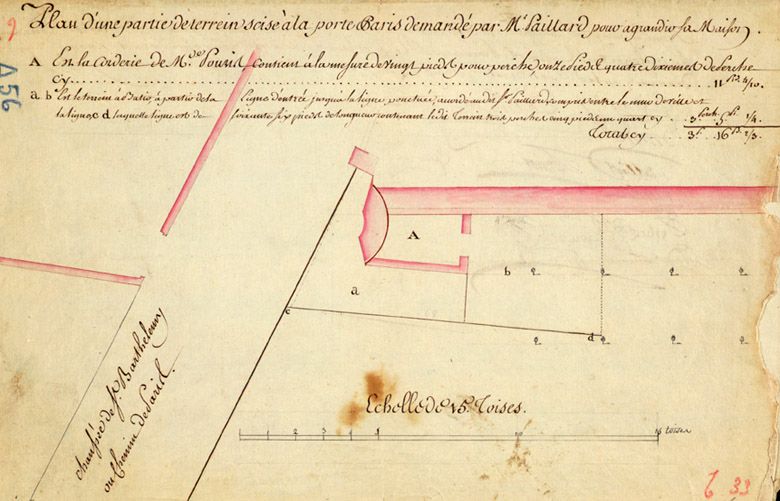 Plan d'une partie de terrein scisé à la porte Paris demandé par Mr Paillard pour agrandir sa Maison.
A En la Corderie de Md. contient à la mesure de vingt pieds pour perche, onze Pieds quatre dixiemes de Perche
cy 11 Pds. 4/10.
a b En le terrein à Batir, à partir de la Ligne d'entrée jusqu'à la ligne ponctuée, au dit Sr. Paillard, compris entre le mur de et
la ligne c d laquelle ligne est de soixante six pieds de longueur contenant le dit Terrein trois perches cinq pieds un quart cy 3 perch. 5 pi. 1/4.
Total cy 3 P. 16 Ps. 2/3.
A 56
A
a
b
c
d
chaussée de St Barthelemy
ou Chemin de Paris.
Echelle de 15 Toises.
1 2 3 4 5 10 15 toises
33